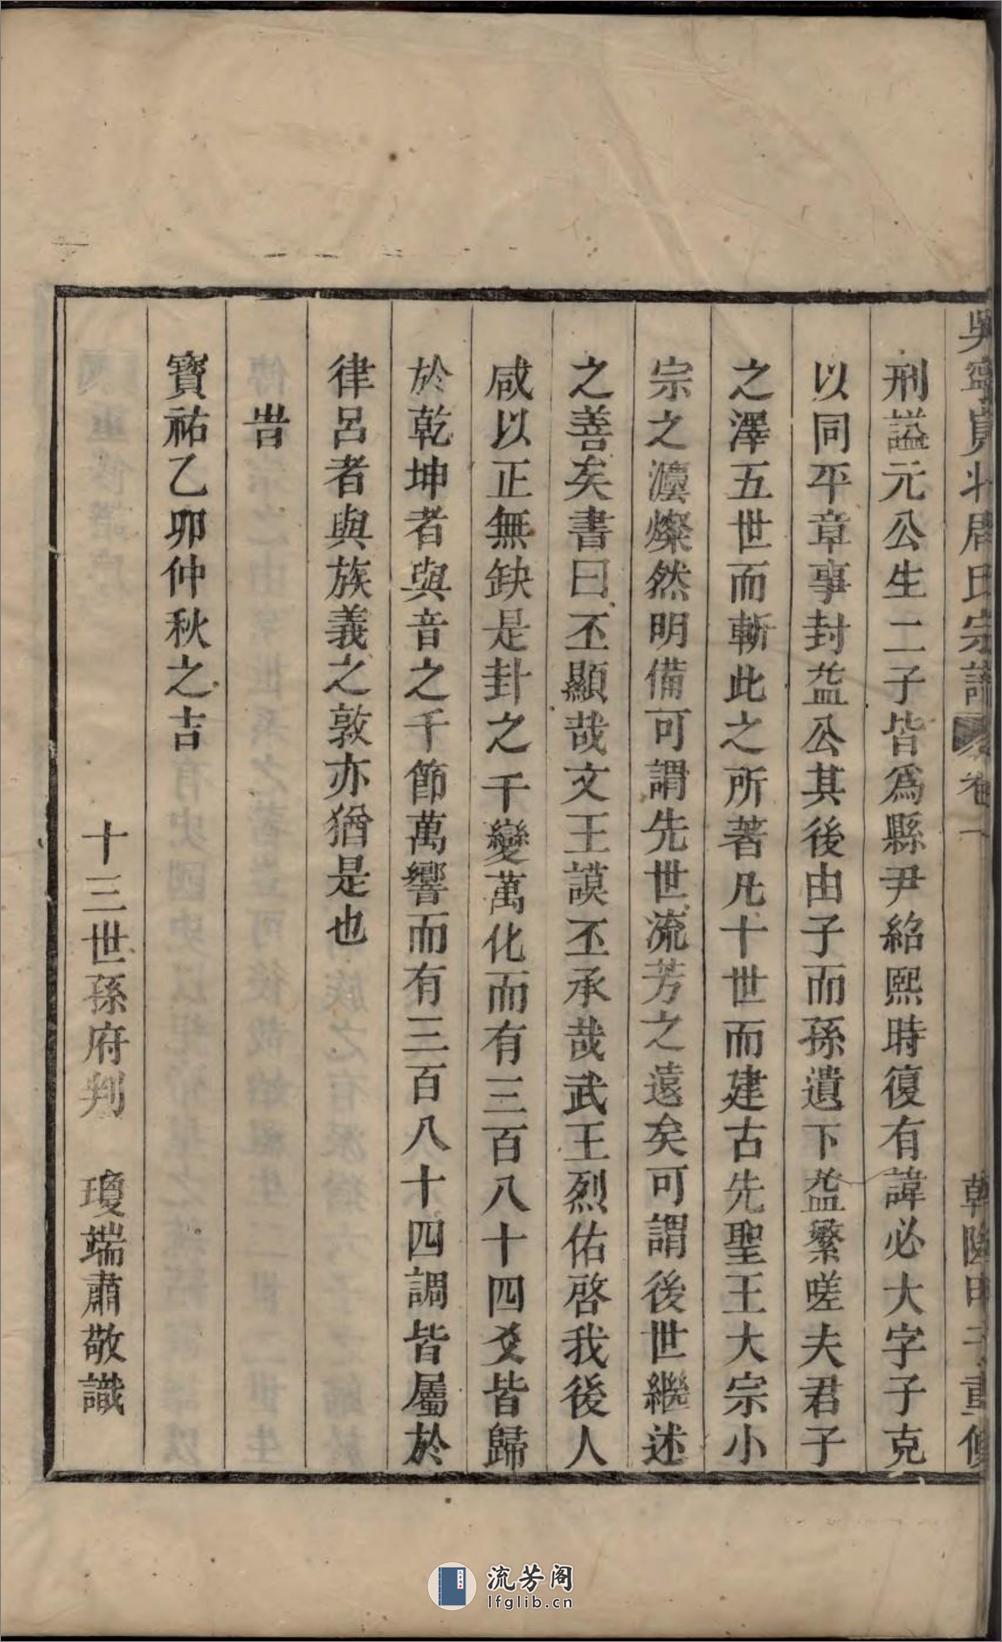 吳寧貞𠃛周氏宗譜 卷一 乾隆甲子重修
刑謚元公生二子皆爲縣尹紹熙時復有諱必大字子克
以同平章事封益公其後由子而孫遺下益繁嗟夫君子
之澤五世而斬此之所著凡十世而建古先聖王大宗小
宗之灋燦然明備可謂先世流芳之遠矣可謂後世繼述
之善矣書曰丕顯哉文王謨丕承哉武王烈佑啓我後人
咸以正無缺是卦之千變萬化而有三百八十四爻皆歸
於乾坤者與音之千節萬響而有三百八十四調皆屬於
律呂者與族義之敦亦猶是也
旹
寶祐乙卯仲秋之吉
十三世孫府判 瓊端肅敬識
流芳阁
lfglib.cn